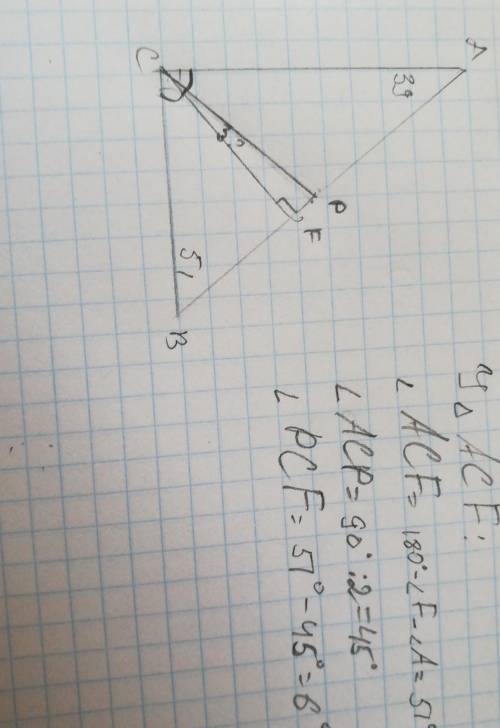 A
39
C
3
P
F
51
B
У △ ACF:
∠ ACF = 180° - ∠F - ∠A = 51
∠ ACP = 90° : 2 = 45°
∠ PCF = 51° - 45° = 6°